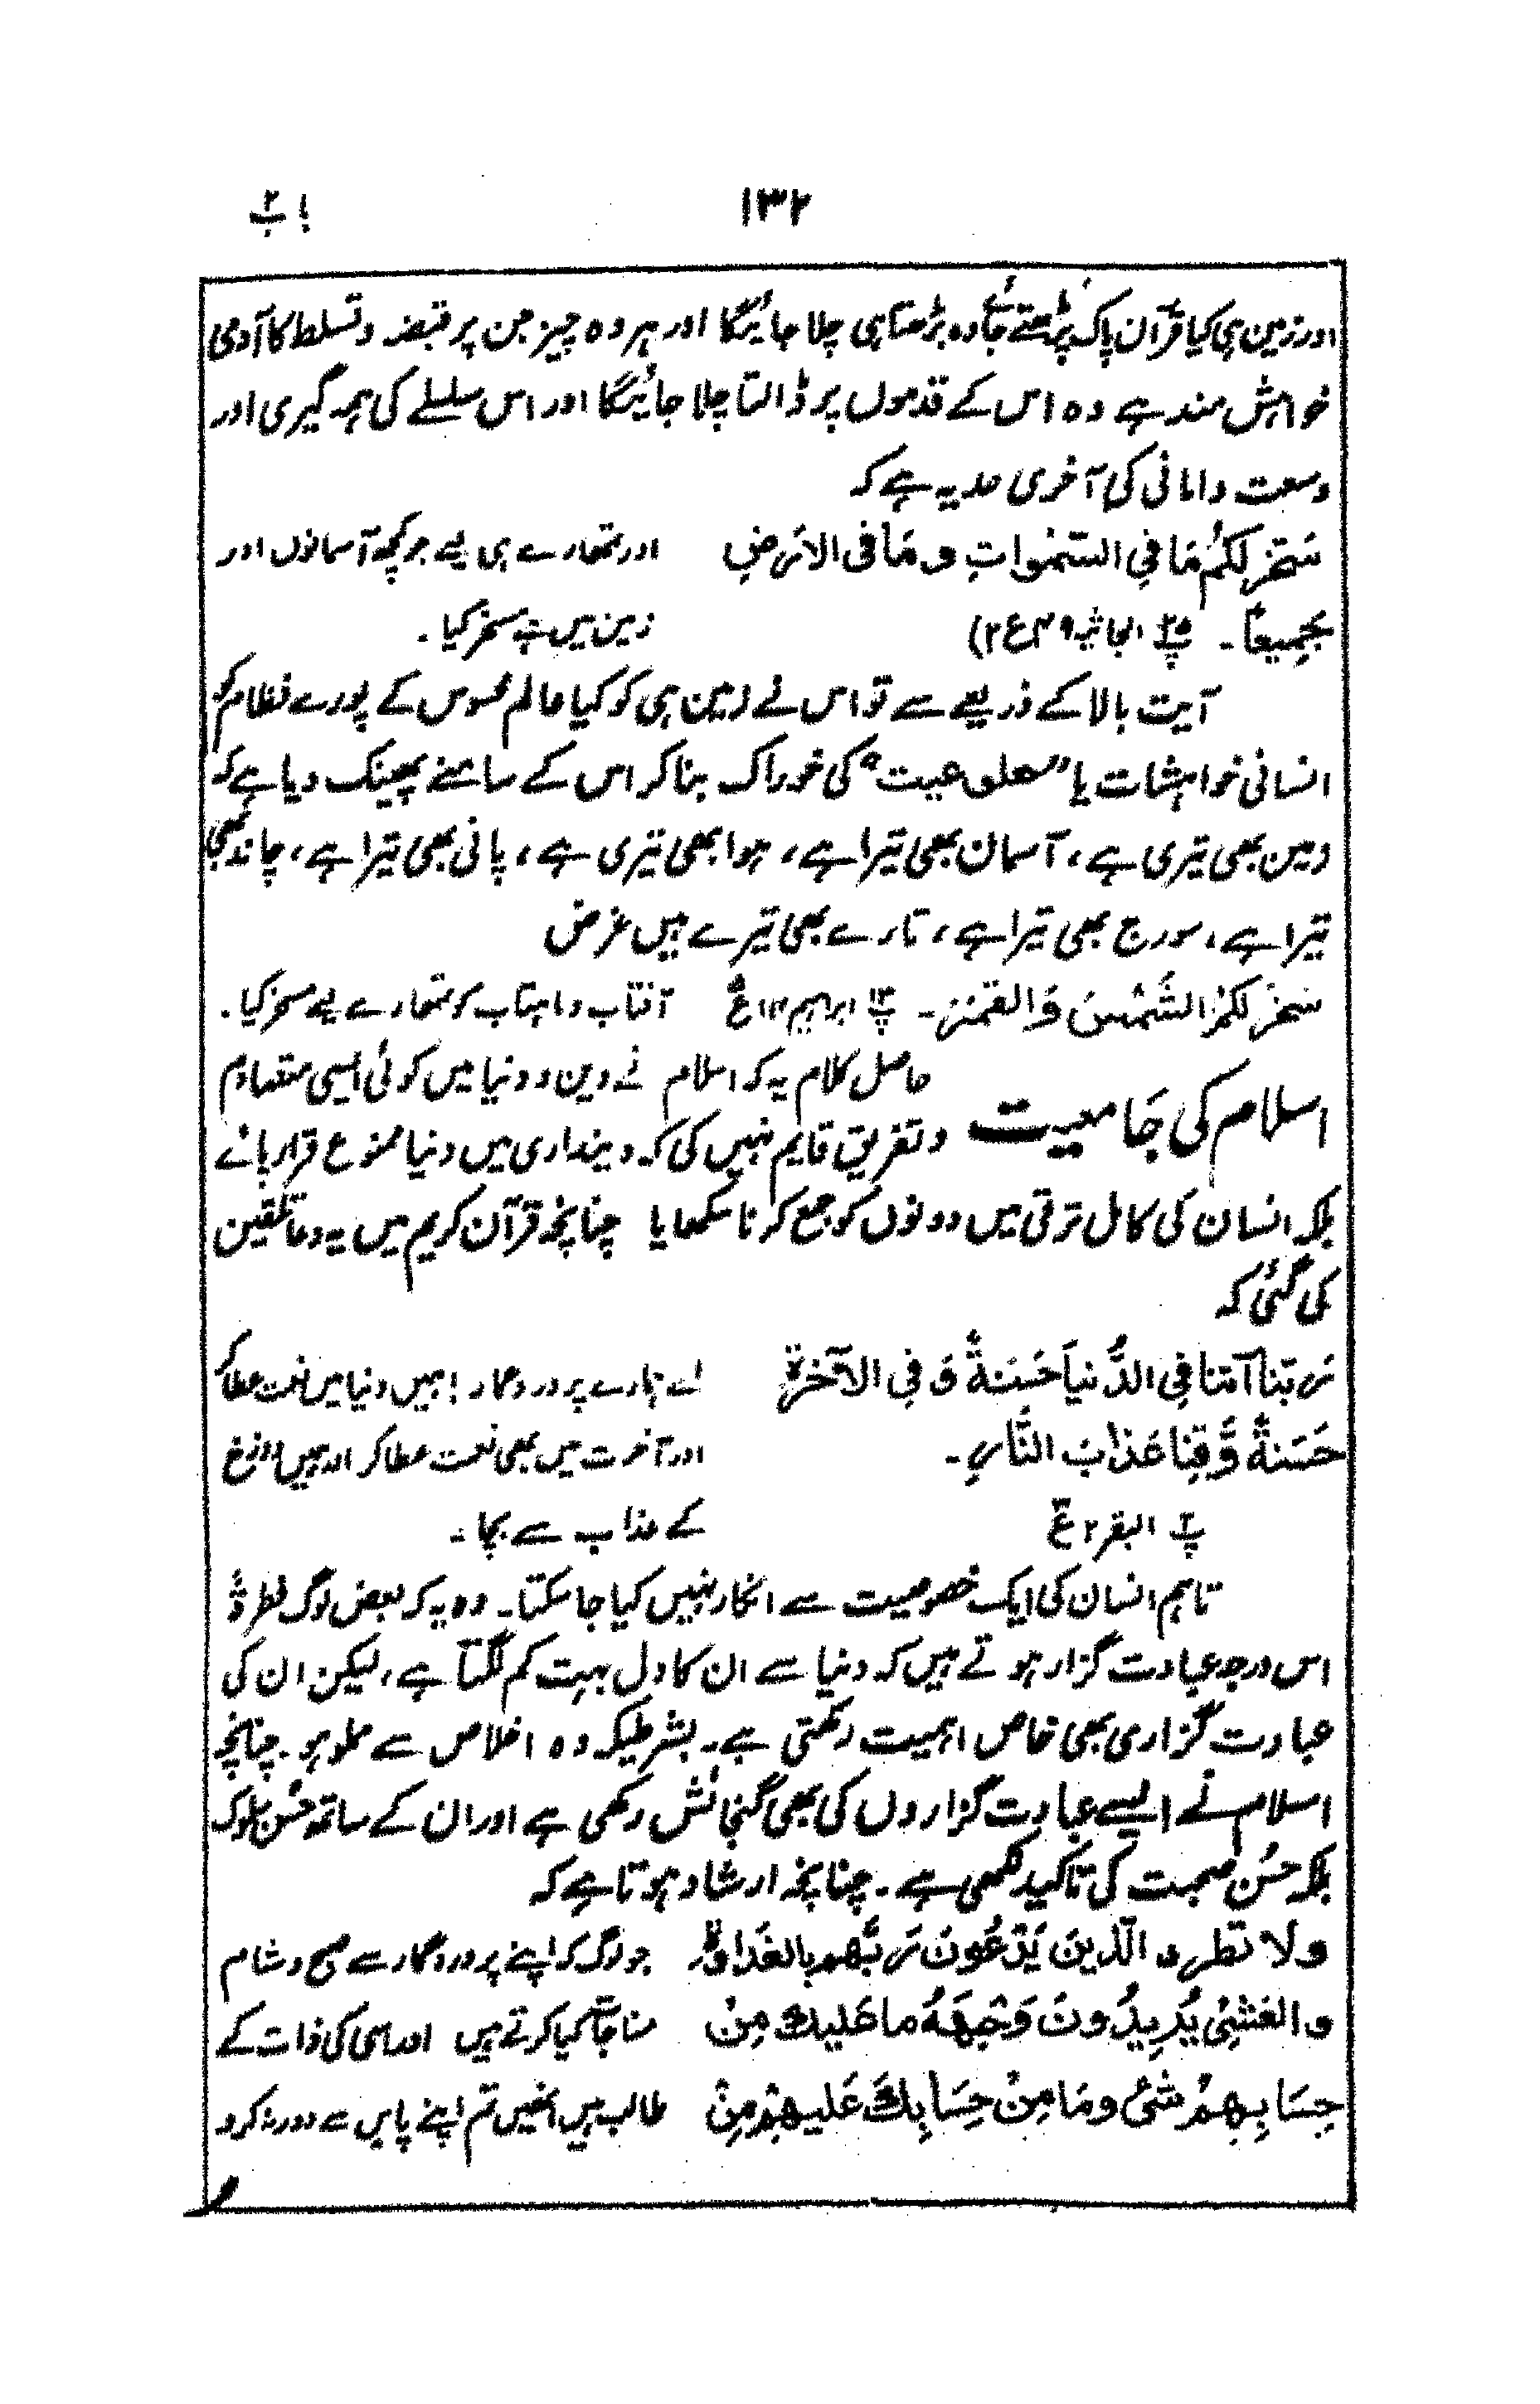 باب ۲
۱۳۲
اور زمین ہی کیا قرآن پاک پڑھتے جائے وہ بڑھتا ہی چلا جائیگا اور ہر وہ چیز جن پر قبضہ و تسلط کا آدمی
خواہش مند ہے وہ اس کے قدموں پر ڈالتا چلا جائیگا اور اس سلسلے کی ہمہ گیری اور
وسعت دامانی کی آخری حد یہ ہے کہ
سَخَّرَ لَكُمْ مَا فِي السَّمٰوَاتِ وَمَا فِي الْاَرْضِ اور تمھارے ہی لیے جو کچھ آسمانوں اور
جَمِيعاً ۔ پ۲۵ الجاثیہ ۴۹ ع ۲) زمین میں ہے مسخر کیا ۔
آیت بالا کے ذریعے سے تو اس نے زمین ہی کو کیا عالم محسوس کے پورے نظام کو
انسانی خواہشات یا "معلق عیت" کی خوراک بنا کر اس کے سامنے پھینک دیا ہے کہ
زمین بھی تیری ہے، آسمان بھی تیرا ہے، ہوا بھی تیری ہے، پانی بھی تیرا ہے، چاند بھی
تیرا ہے، سورج بھی تیرا ہے، تارے بھی تیرے ہیں غرض
سَخَّرَ لَكُمُ الشَّمْسَ وَالْقَمَرَ ۔ پ۱۳ ابراہیم ۱۴ ع آفتاب و ماہتاب کو تمھارے لیے مسخر کیا ۔
اسلام کی جَامعیت حاصل کلام یہ کہ اسلام نے دین و دنیا میں کوئی ایسی متصادم
و تفریق قایم نہیں کی کہ دینداری میں دنیا ممنوع قرار پائے
بلکہ انسان کی کامل ترقی میں دونوں کو جمع کرنا سکھایا چنانچہ قرآن کریم میں یہ دعا تلقین
کی گئی کہ
رَبَّنَا آتِنَا فِي الدُّنْيَا حَسَنَةً وَّ فِي الْآخِرَةِ اے ہمارے پروردگار! ہمیں دنیا میں نعمت عطا کر
حَسَنَةً وَّقِنَا عَذَابَ النَّارِ ۔ اور آخرت میں بھی نعمت عطا کر اور ہمیں دوزخ
پ۲ البقر ۲ ع کے عذاب سے بچا ۔
تاہم انسان کی ایک خصوصیت سے انکار نہیں کیا جا سکتا۔ وہ یہ کہ بعض لوگ فطرۃً
اس درجہ عبادت گزار ہوتے ہیں کہ دنیا سے ان کا دل بہت کم لگتا ہے، لیکن ان کی
عبادت گزاری بھی خاص اہمیت رکھتی ہے۔ بشرطیکہ وہ اخلاص سے مملو ہو۔ چنانچہ
اسلام نے ایسے عبادت گزاروں کی بھی گنجائش رکھی ہے اور ان کے ساتھ حُسن سلوک
بلکہ حُسن صحبت کی تاکید لکھی ہے۔ چنانچہ ارشاد ہوتا ہے کہ
وَلَا تَطْرُدِ الَّذِينَ يَدْعُونَ رَبَّهُم بِالْغَدَاوةِ جو لوگ کہ اپنے پروردگار سے صبح و شام
وَالْعَشِيِّ يُرِيدُونَ وَجْهَهُ مَا عَلَيْكَ مِنْ مناجات کیا کرتے ہیں اور اسی کی ذات کے
حِسَابِهِمْ شَيْءٍ وَمَا مِنْ حِسَابِكَ عَلَيْهِمْ مِنْ طالب ہیں انھیں تم اپنے پاس سے دور نہ کرو